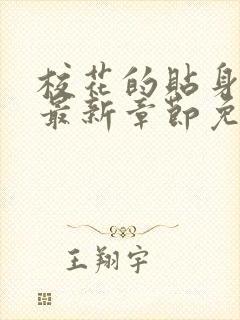 校花的贴身
最新章节免
王翔宇